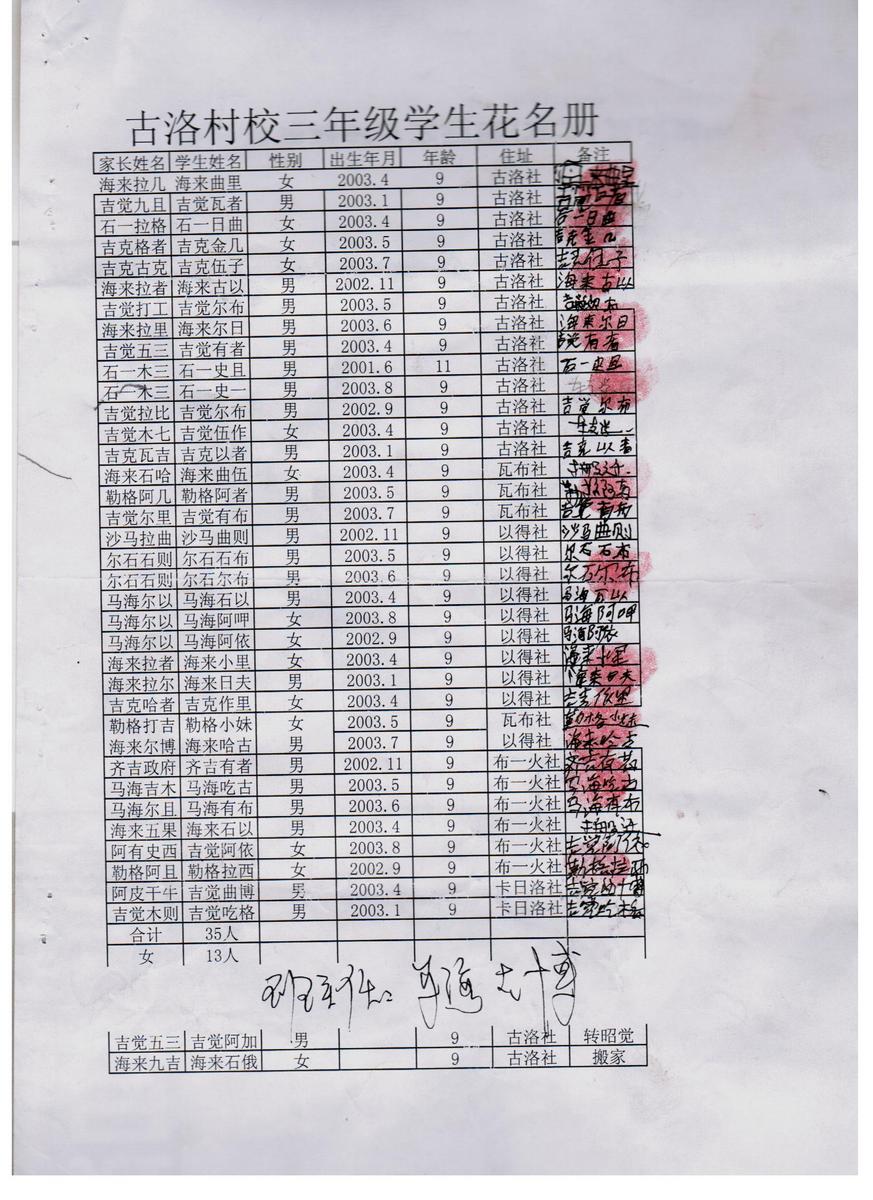 古洛村校三年级学生花名册
家长姓名 学生姓名 性别 出生年月 年龄 住址 备注
海来拉几 海来曲里 女 2003.4 9 古洛社
吉觉九且 吉觉瓦者 男 2003.1 9 古洛社
石一拉格 石一日曲 女 2003.4 9 古洛社 石一日曲
吉克格者 吉克金几 女 2003.5 9 古洛社 吉克金几
吉克古克 吉克伍子 女 2003.7 9 古洛社 吉克伍子
海来拉者 海来古以 男 2002.11 9 古洛社 海来古以
吉觉打工 吉觉尔布 男 2003.5 9 古洛社
海来拉里 海来尔日 男 2003.6 9 古洛社 海来尔日
吉觉五三 吉觉有者 男 2003.4 9 古洛社 吉觉有者
石一木三 石一史且 男 2001.6 11 古洛社 石一史且
石一木三 石一史一 男 2003.8 9 古洛社
吉觉拉比 吉觉尔布 男 2002.9 9 古洛社 吉觉尔布
吉觉木七 吉觉伍作 女 2003.4 9 古洛社
吉克瓦吉 吉克以者 男 2003.1 9 古洛社 吉克以者
海来石哈 海来曲伍 女 2003.4 9 瓦布社
勒格阿几 勒格阿者 男 2003.5 9 瓦布社
吉觉尔里 吉觉有布 男 2003.7 9 瓦布社 吉觉有布
沙马拉曲 沙马曲则 男 2002.11 9 以得社 沙马曲则
尔石石则 尔石石布 男 2003.5 9 以得社 尔石石布
尔石石则 尔石尔布 男 2003.6 9 以得社 尔石尔布
马海尔以 马海石以 男 2003.4 9 以得社 马海石以
马海尔以 马海阿呷 女 2003.8 9 以得社 马海阿呷
马海尔以 马海阿依 女 2002.9 9 以得社 马海阿依
海来拉者 海来小里 女 2003.4 9 以得社 海来小里
海来拉尔 海来日夫 男 2003.1 9 以得社 海来日夫
吉克哈者 吉克作里 女 2003.4 9 以得社 吉克作里
勒格打吉 勒格小妹 女 2003.5 9 瓦布社 勒格小妹
海来尔博 海来哈古 男 2003.7 9 以得社 海来哈古
齐吉政府 齐吉有者 男 2002.11 9 布一火社 齐吉有者
马海吉木 马海吃古 男 2003.5 9 布一火社 马海吃古
马海尔且 马海有布 男 2003.6 9 布一火社 马海有布
海来五果 海来石以 男 2003.4 9 布一火社
阿有史西 吉觉阿依 女 2003.8 9 布一火社 吉觉阿依
勒格阿且 勒格拉西 女 2002.9 9 布一火社 勒格拉西
阿皮干牛 吉觉曲博 男 2003.4 9 卡日洛社 吉觉曲博
吉觉木则 吉觉吃格 男 2003.1 9 卡日洛社 吉觉吃格
合计 35人
女 13人
班主任：
吉觉五三 吉觉阿加 男 9 古洛社 转昭觉
海来九吉 海来石俄 女 9 古洛社 搬家